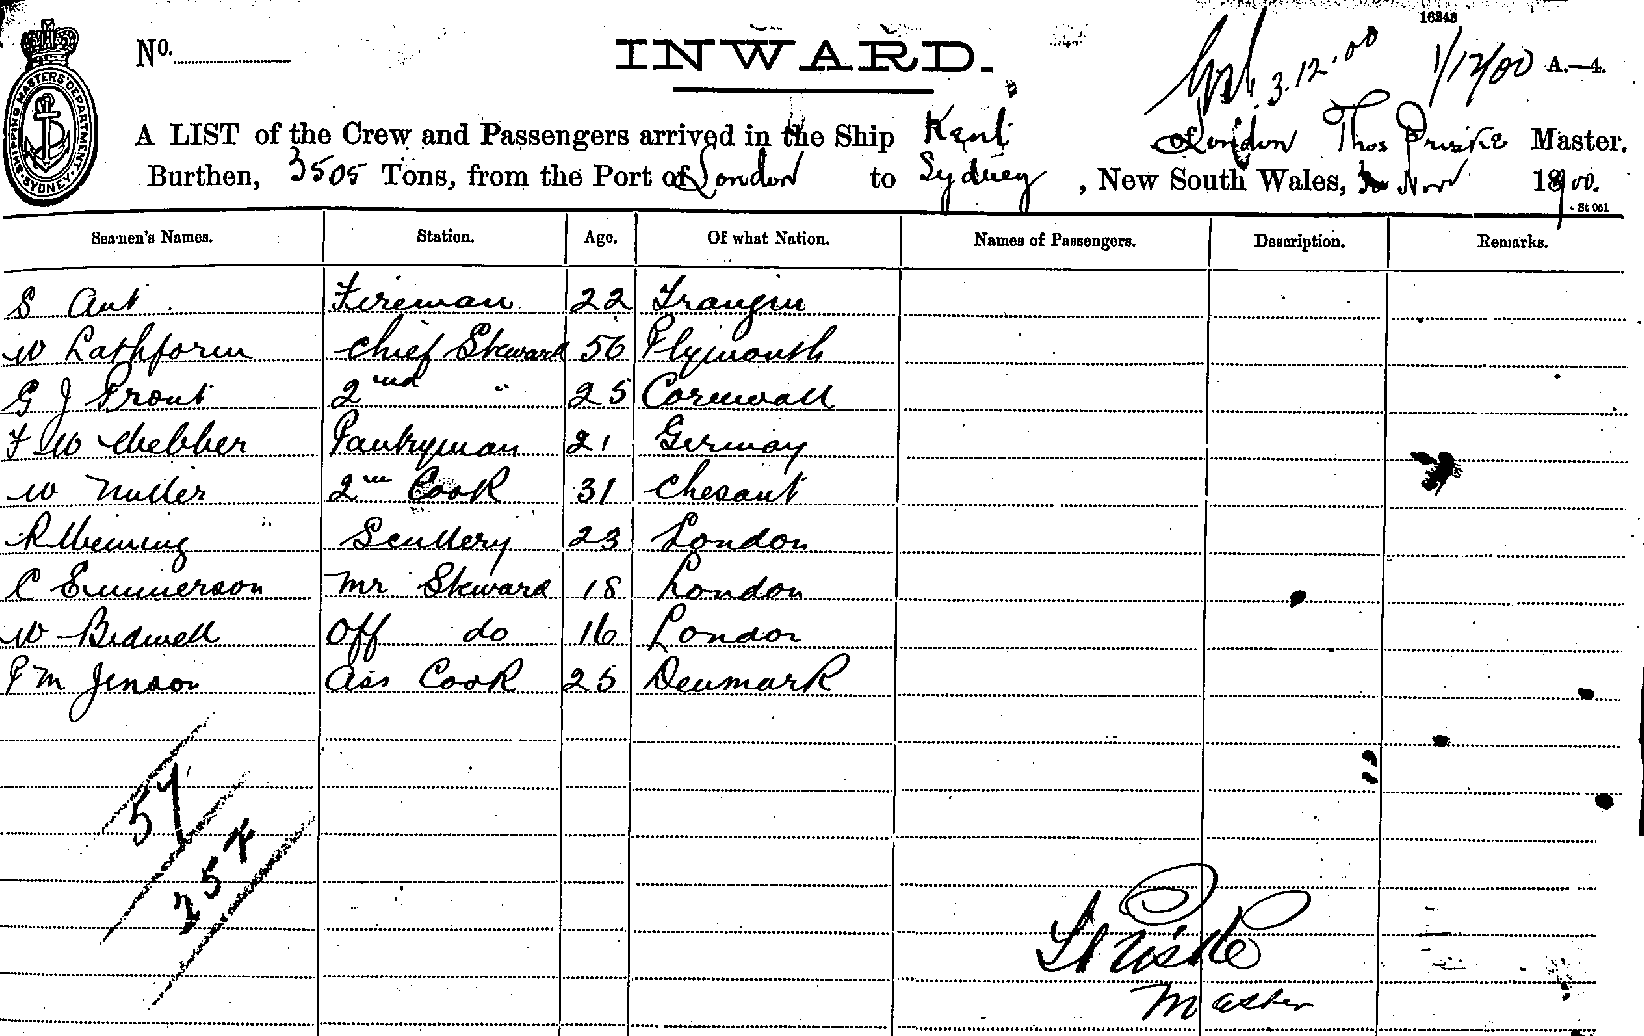 16248
No.
INWARD.
3.12.00
1/12/00 A.—4.
A LIST of the Crew and Passengers arrived in the Ship Kent of London Thos Priske Master.
Burthen, 3505 Tons, from the Port of London to Sydney, New South Wales, Nov 1900.
SHIPPING MASTERS DEPARTMENT SYDNEY
Seamen's Names. Station. Age. Of what Nation. Names of Passengers. Description. Remarks.
S Ant Fireman 22
W Lathform Chief Steward 56 Plymouth
G J Prout 2nd " 25 Cornwall
F W Webber Pantryman 21 Germay
W Miller 2nd Cook 31 Chesant
R Scullery 23 London
C Emmerson Mr Steward 18 London
W Bidwell Off do 16 London
P M Jenson Ass Cook 25 Denmark
57
Priske
Master